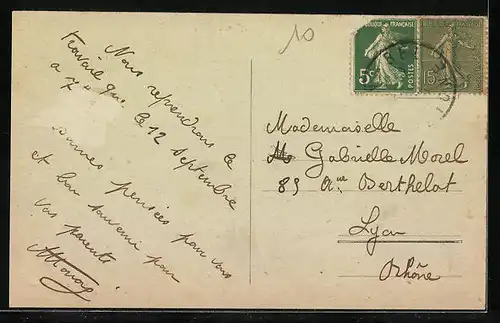 10
RÉPUBLIQUE FRANÇAISE
5c POSTES
15c
Nous reprendrons le
travail que le 12 septembre
a 7h
bonnes pensées pour vous
et bon souvenir pour
vos parents
Mademoiselle
Gabrielle Morel
85 Aue Berthelot
Lyon
Rhône